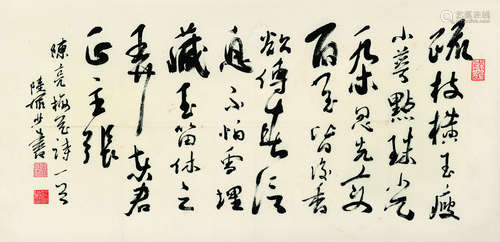 疏枝橫玉瘦
小萼點珠光
一朵忽先變
百花皆後香
欲傳春信
息不怕雪埋
藏玉笛休三
弄東君
正主張
陳亮梅花詩一首
陸 書